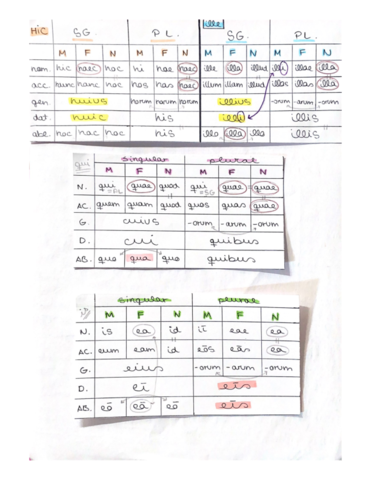 HIC SG PL. ille SG. PL.
M F N M F N M F N M F N
nom hic haec hoc hi hae haec ille illa illud illi illae illa
acc hunc hanc hoc hos has haec illum illam illud illos illas illa
gen huius horum harum horum illius -orum -arum -orum
dat. huic his illi illis
abl hoc hac hoc his illo illa illo illis
qui singular plural
M F N M F N
N. qui quae quod qui quae quae
=PL =SG
AC. quem quam quod quos quas quae
G. cuius -orum -arum -orum
D. cui quibus
AB. quo qua quo quibus
is singular plural
M F N M F N
N. is ea id iī eae ea
AC. eum eam id eōs eās ea
G. eius -orum -arum -orum
D. eī eīs
AB. eō eā eō eīs